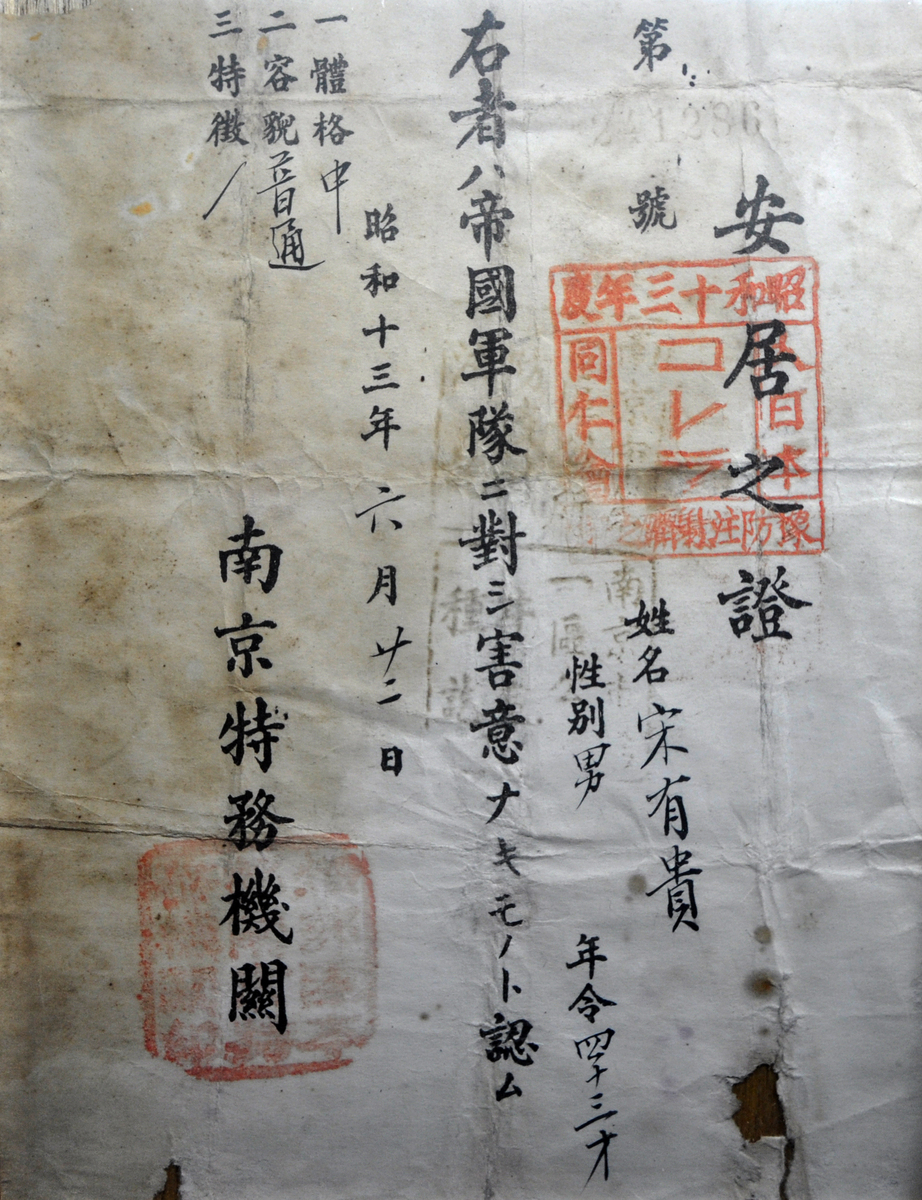 安居之證
第 241236 號
姓名 宋有貴
性別 男 年令 四十三才
右者ハ帝國軍隊ニ對シ害意ナキモノト認ム
昭和十三年 六月 廿二日
南京特務機關
一 體格 中
二 容貌 普通
三 特徴 /
昭和十三年度
大日本
コレラ
同仁會
豫防注射濟之